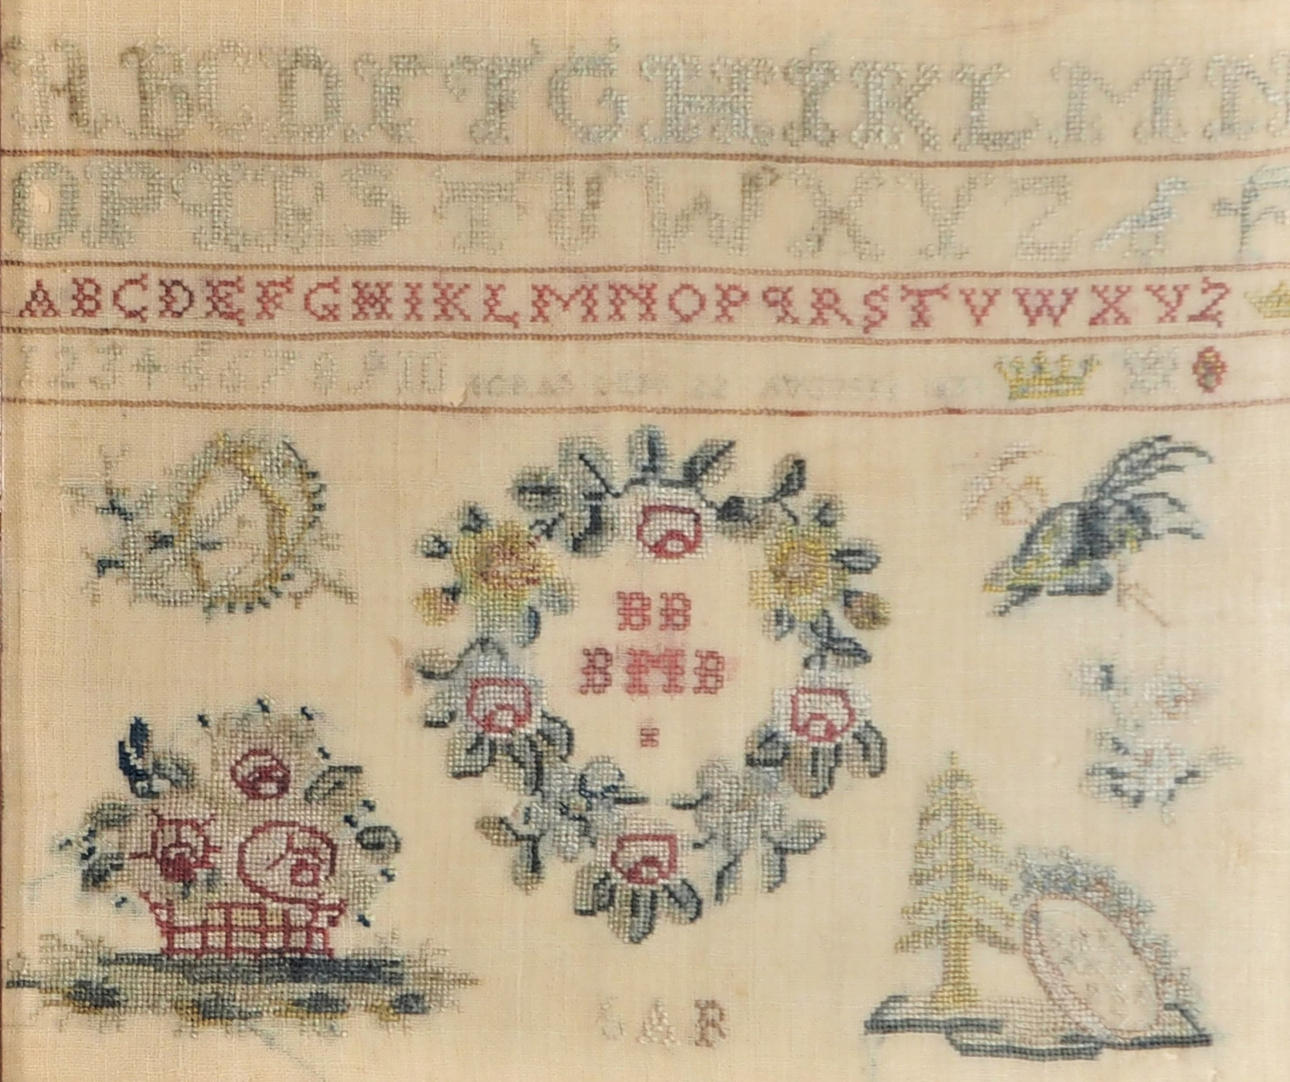 ABCDEFGHIKLMN
OPQRSTUWXYZ
ABCDEFGHIKLMNOPQRSTVWXYZ
12345678910
BB
BMB
AR